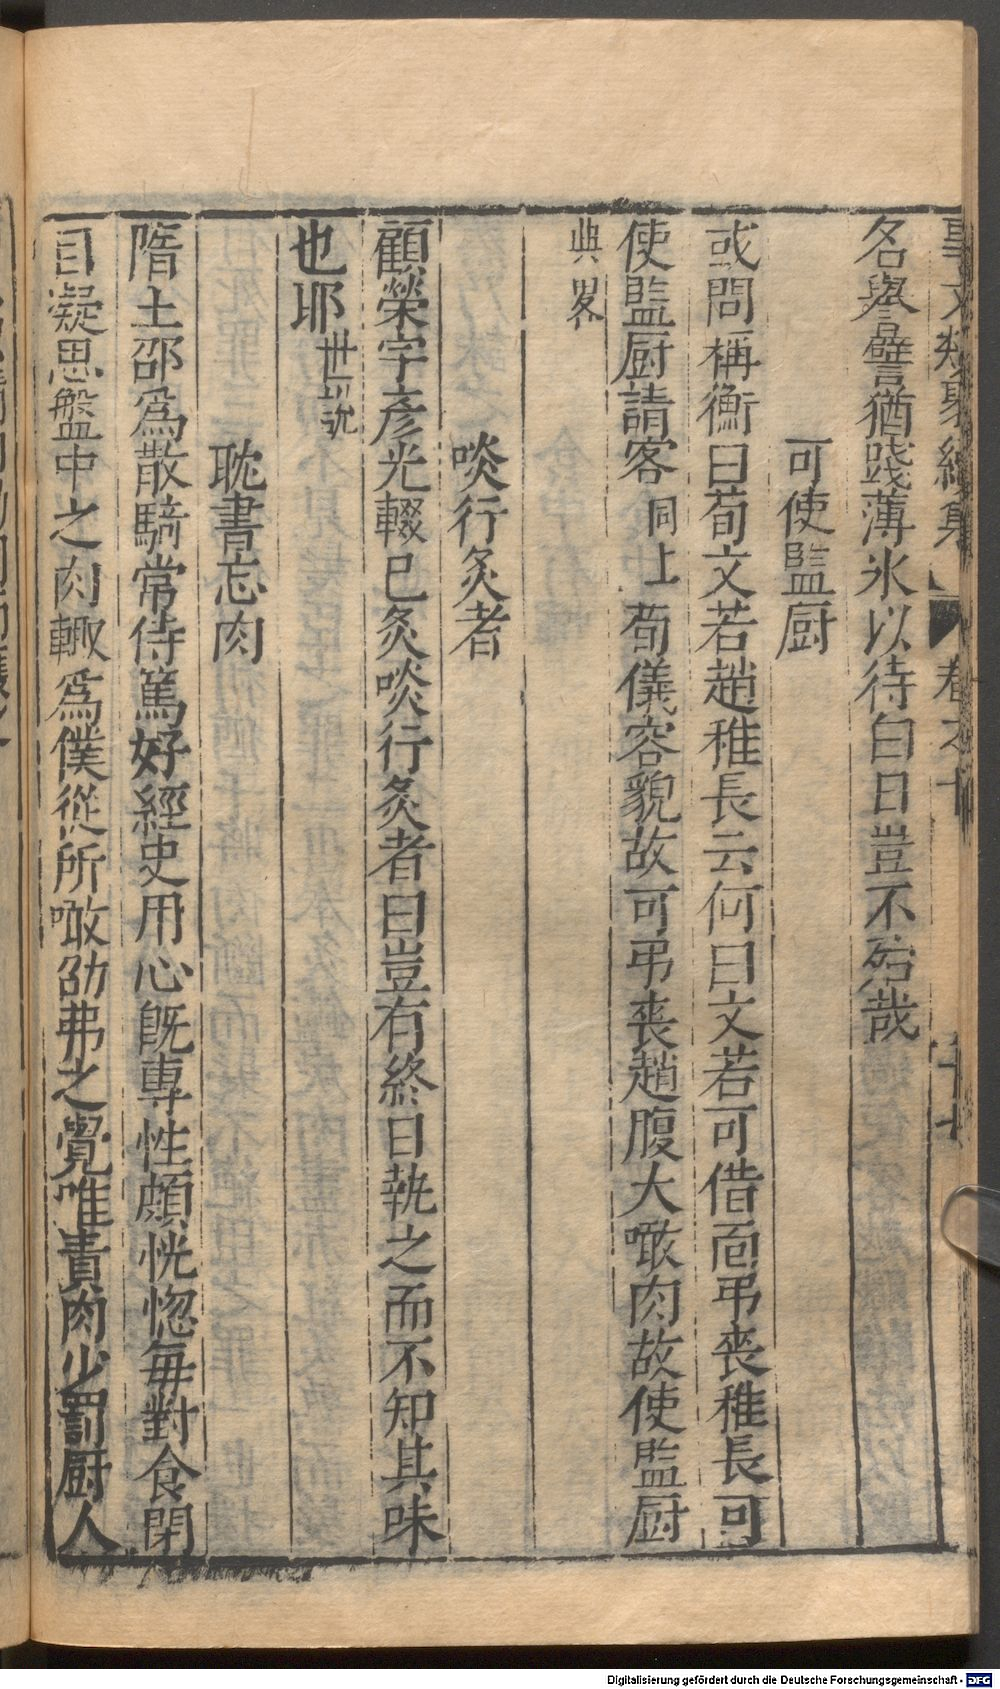 事文類聚續集 卷之十 二十七
名與譬猶踐薄氷以待白日豈不殆哉
可使監厨
或問稱衡曰荀文若趙稚長云何曰文若可借面弔喪稚長可
使監厨請客 同上 荀儀容貌故可弔喪趙腹大噉肉故使監厨
典畧
啖行炙者
顧榮字彦光輟己炙啖行炙者曰豈有終日執之而不知其味
也耶 世説
耽書忘肉
隋土邵爲散騎常侍篤好經史用心旣專性頗恍惚每對食閉
目凝思盤中之肉輙爲僕從所噉劭弗之覺唯責肉少罰厨人
Digitalisierung gefördert durch die Deutsche Forschungsgemeinschaft - DFG